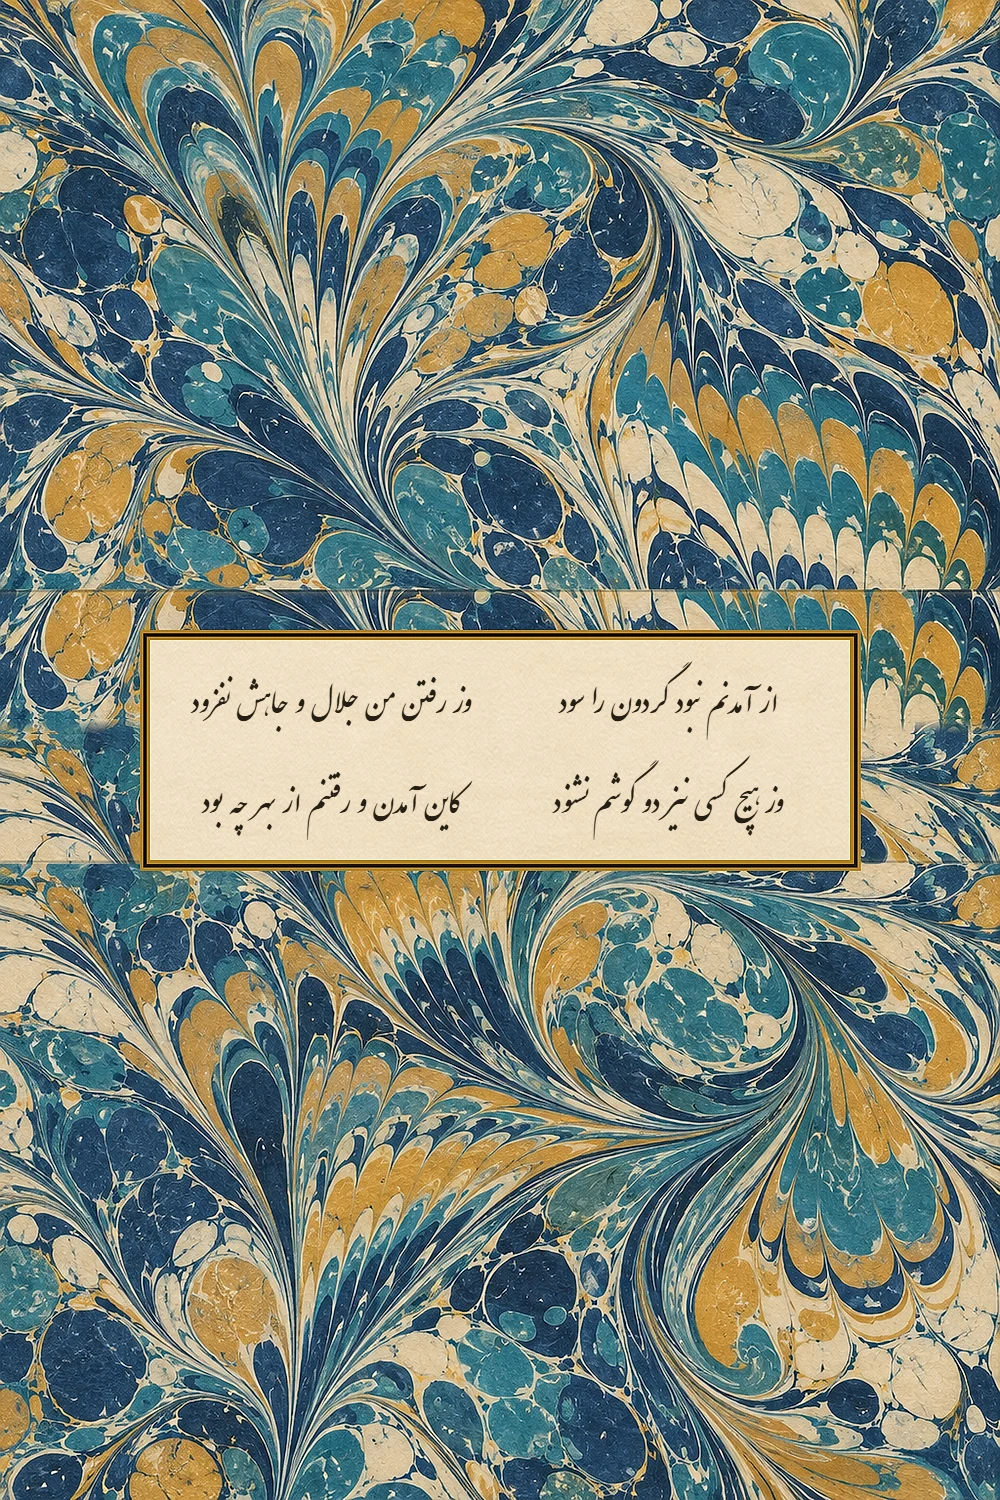 از آمدنم نبود گردون را سود	وز رفتن من جلال و جاهش نفزود
وز هیچ کسی نیز دو گوشم نشنود	کاین آمدن و رفتنم از بهر چه بود